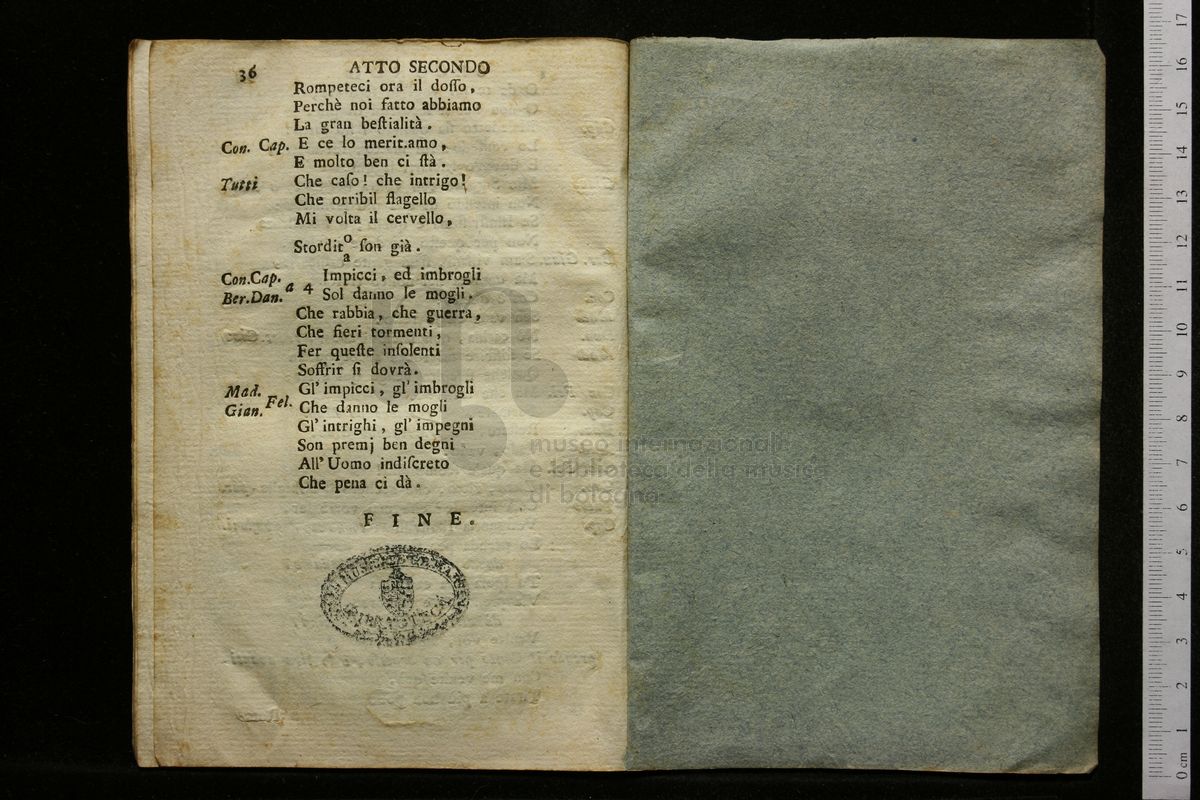 36
ATTO SECONDO
Rompeteci ora il doſſo,
Perchè noi fatto abbiamo
La gran beſtialità.
Con. Cap. E ce lo merit.amo,
E molto ben ci ſtà.
Tutti Che caſo! che intrigo!
Che orribil flagello
Mi volta il cervello,
Stordit o/a ſon già.
Con.Cap. Impicci, ed imbrogli
Ber.Dan. a 4 Sol danno le mogli.
Che rabbia, che guerra,
Che fieri tormenti,
Fer queſte inſolenti
Soffrir ſi dovrà.
Mad. Gl' impicci, gl' imbrogli
Gian. Fel. Che danno le mogli
Gl' intrighi, gl' impegni
Son premj ben degni
All' Uomo indiſcreto
Che pena ci dà.
FINE.
BIBLIOTECA
museo internazionale
e biblioteca della musica
di bologna
17
16
15
14
13
12
11
10
9
8
7
6
5
4
3
2
1
0 cm